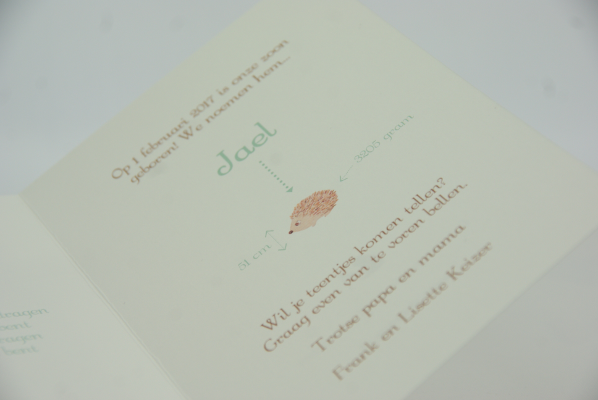 Op 1 februari 2017 is onze zoon
geboren! We noemen hem...
Jael
3205 gram
51 cm
Wil je teentjes komen tellen?
Graag even van te voren bellen.
Trotse papa en mama
Frank en Lisette Keizer
dragen
ben!
dragen
ben!